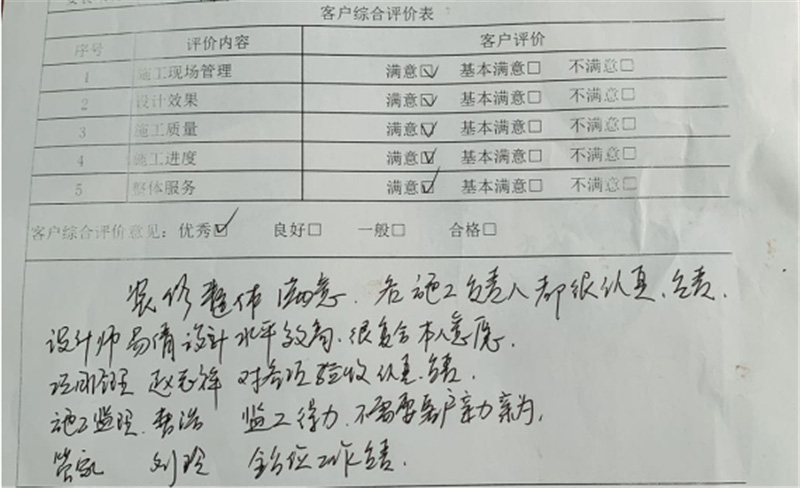 客户综合评价表
序号 评价内容 客户评价
1 施工现场管理 满意☑ 基本满意□ 不满意□
2 设计效果 满意☑ 基本满意□ 不满意□
3 施工质量 满意☑ 基本满意□ 不满意□
4 施工进度 满意☑ 基本满意□ 不满意□
5 整体服务 满意☑ 基本满意□ 不满意□
客户综合评价意见：优秀☑ 良好□ 一般□ 合格□
装修整体满意．各施工负责人都很认真、负责．
设计师易倩设计水平较高、很复合本人意愿．
项目经理 赵志祥 对各项验收认真、负责．
施工监理 李浩 监工得力、不需要客户亲力亲为．
管家 刘玲 工作负责．